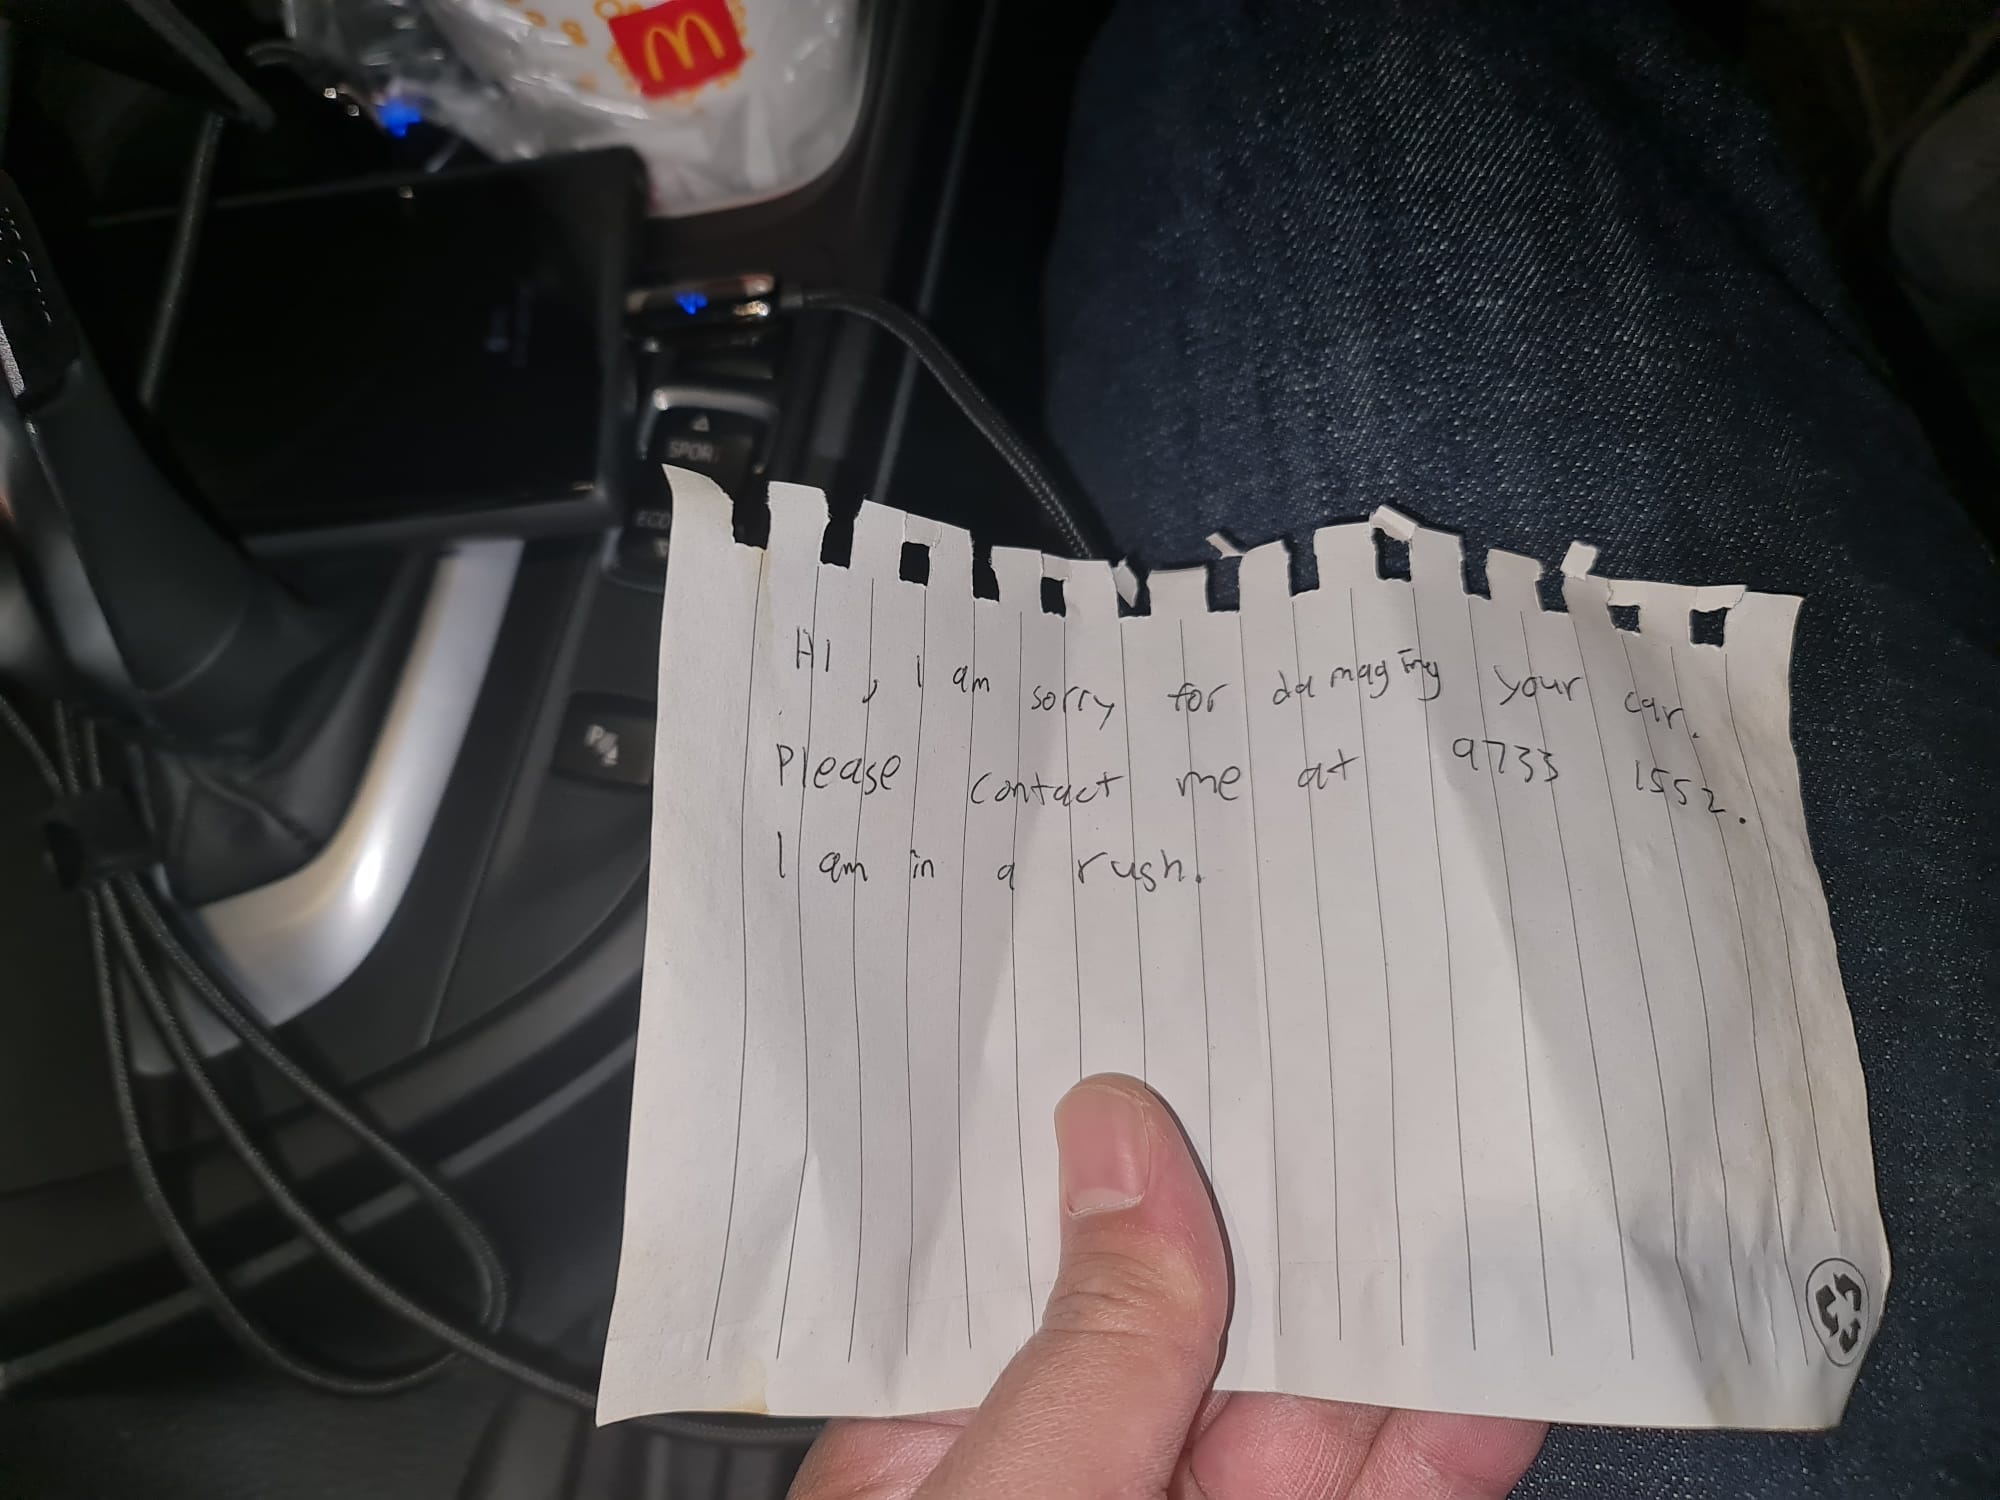 M
SPORT
ECO
P
Hi, I am sorry for damaging your car.
Please contact me at 9733 1552.
I am in a rush.